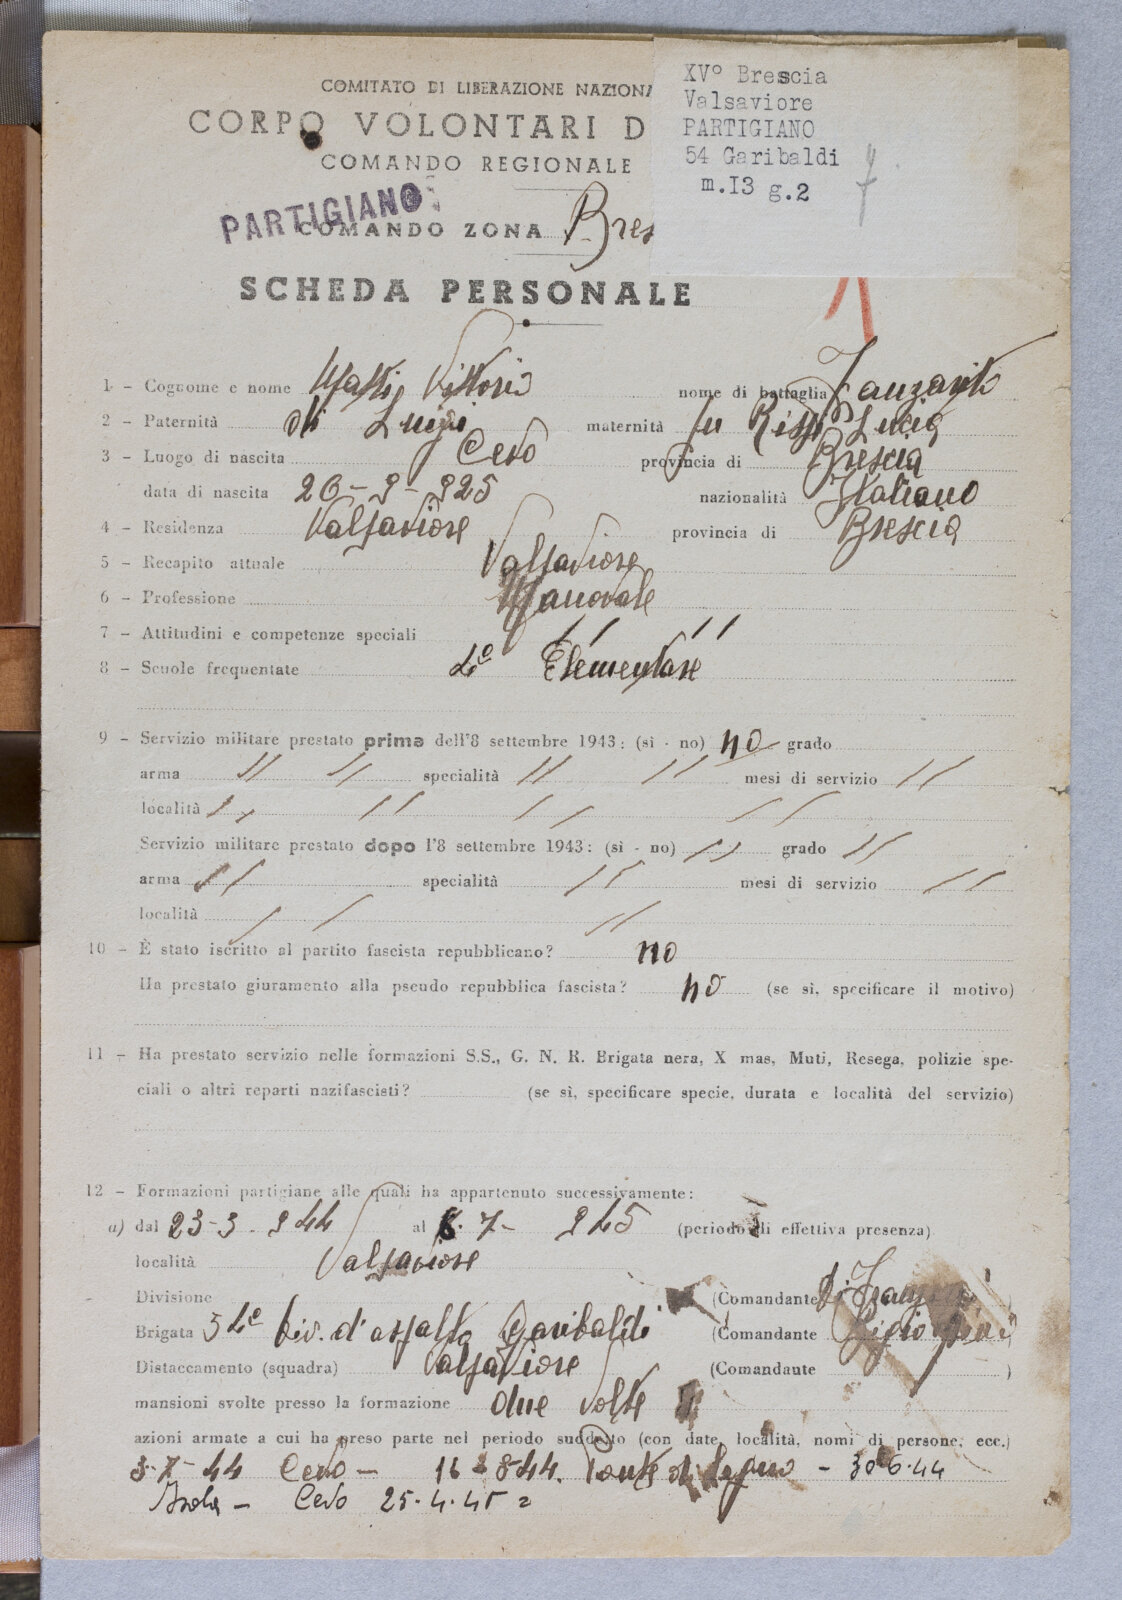 COMITATO DI LIBERAZIONE NAZIONA
CORPO VOLONTARI D
COMANDO REGIONALE
XV° Brescia
Valsaviore
PARTIGIANO
54 Garibaldi
m.I3 g.2
PARTIGIANO
COMANDO ZONA Bres
SCHEDA PERSONALE
1 - Cognome e nome Matti Vittorio nome di battaglia
2 - Paternità di Luigi maternità fu Lucia
3 - Luogo di nascita Cevo provincia di Brescia
data di nascita 26-9-925 nazionalità Italiano
4 - Residenza Valsaviore provincia di Brescia
5 - Recapito attuale Valsaviore
6 - Professione Manovale
7 - Attitudini e competenze speciali // //
8 - Scuole frequentate Elementare
9 - Servizio militare prestato prima dell'8 settembre 1943: (sì - no) no grado
arma // // specialità // // mesi di servizio //
località // // // //
Servizio militare prestato dopo l'8 settembre 1943: (sì - no) // grado //
arma // specialità // mesi di servizio //
località // //
10 - È stato iscritto al partito fascista repubblicano? no
Ha prestato giuramento alla pseudo repubblica fascista? no (se sì, specificare il motivo)
11 - Ha prestato servizio nelle formazioni S.S., G. N. R. Brigata nera, X mas, Muti, Resega, polizie spe-
ciali o altri reparti nazifascisti? (se sì, specificare specie, durata e località del servizio)
12 - Formazioni partigiane alle quali ha appartenuto successivamente:
a) dal 23-3-944 al 8-7-945 (periodo di effettiva presenza)
località Valsaviore
Divisione (Comandante )
Brigata 54e Div. d'assalto Garibaldi (Comandante
Distaccamento (squadra) Valsaviore (Comandante )
mansioni svolte presso la formazione due volte
azioni armate a cui ha preso parte nel periodo suddetto (con date, località, nomi di persone, ecc.)
3-7-44 Cevo - 8-44. Ponte di Legno - 30-6-44
Isola - Cevo 25.4.45 =